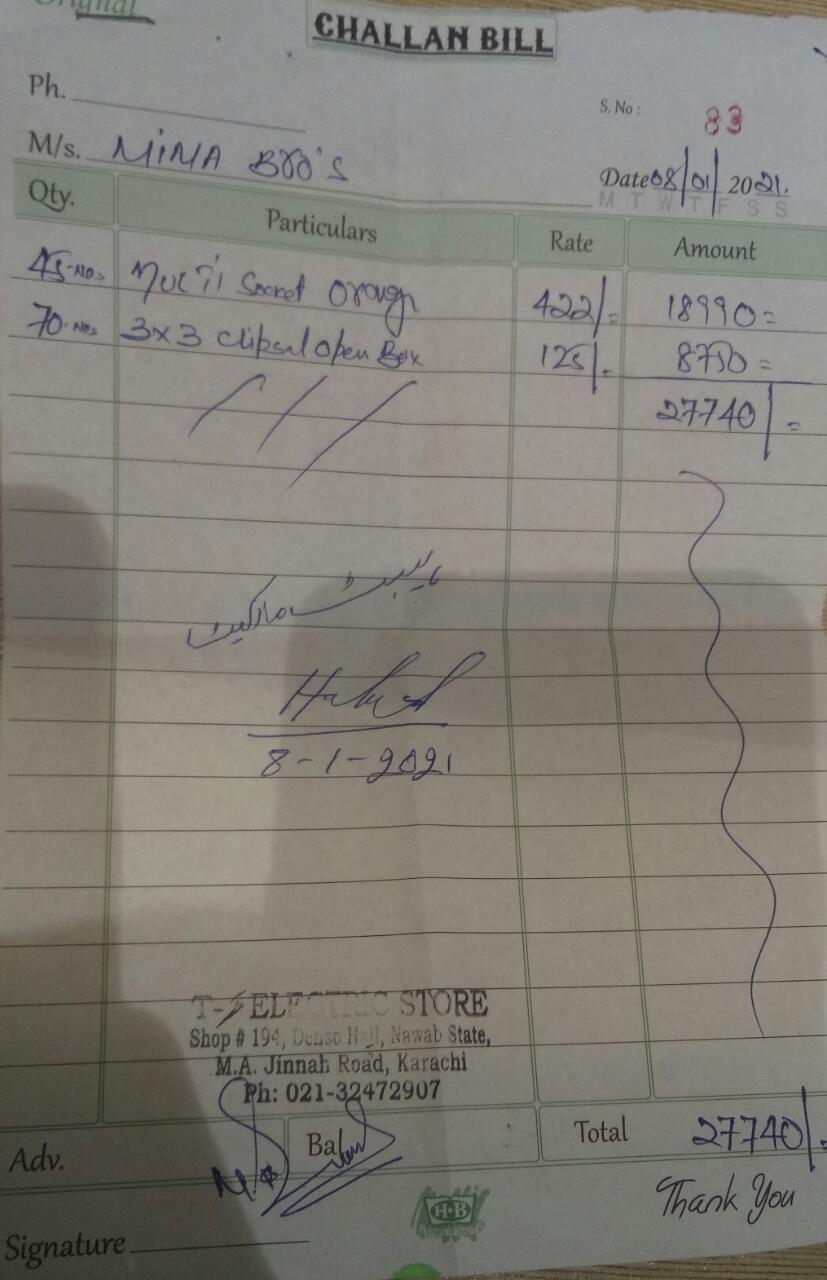 Original
CHALLAN BILL
Ph.
S. No : 83
M/s. MIMA BRO'S
Date 08/01/2021.
M T W T F S S
Qty. Particulars Rate Amount
45-Nos MULTI Socket Orange 422/= 18990=
70-Nos 3x3 Clipsal Open Box 125/- 8750=
27740/=
مارکیٹ
8-1-2021
T-S ELECTRIC STORE
Shop # 194, Denso Hall, Nawab State,
M.A. Jinnah Road, Karachi
Ph: 021-32472907
Adv. Bal Total 27740/-
Thank You
H·B
Signature